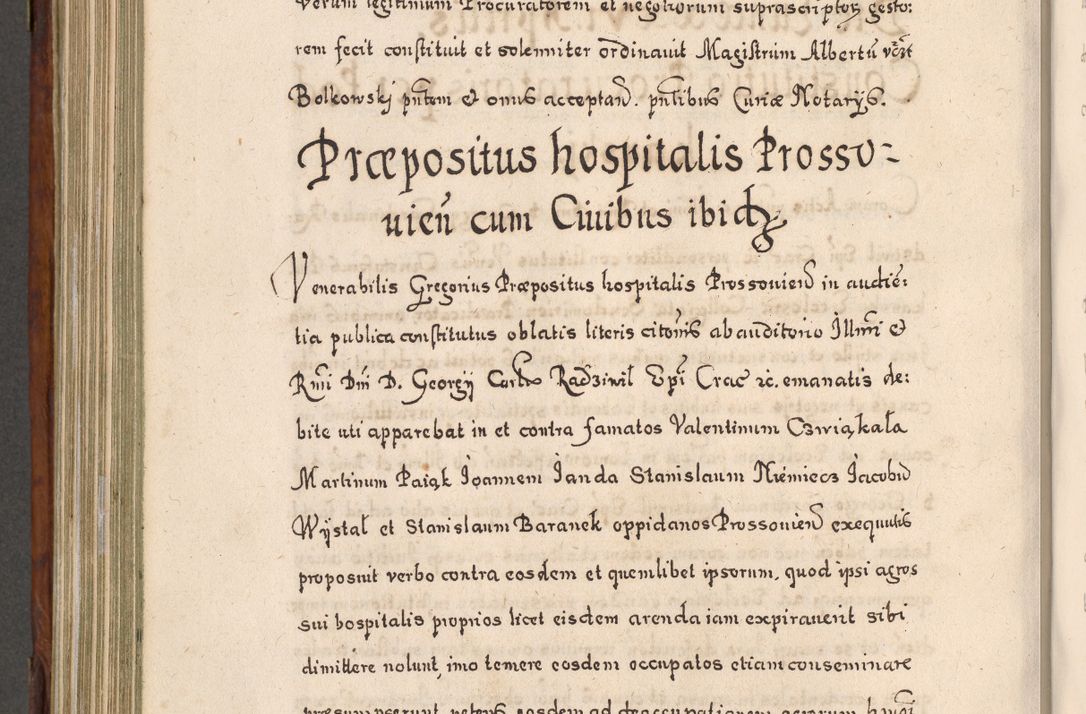 verum legitimum Procuratorem et negotiorum suprascriptor gesto:
rem fecit constituit et solenniter ordinauit Magistrum Albertu
Bolkowskj pntem et onus acceptan. pntibus Curiæ Notarijs.
Præpositus hospitalis Prosso-
uien cum Ciuibus ibid
Venerabilis Gregorius Præpositus hospitalis Prossouien in audie:
tia publica constitutus oblatis literis citoris ab auditorio Illmi et
Rmi Dni D. Georgij Radziwil Epi Crac etc. emanatis de:
bite uti apparebat in et contra famatos Valentinum Czwiąkała
Martinum Paiąk Joannem Janda Stanislaum Niemiecz Jacobu
Wystal et Stanislaum Baranek oppidanos Prossouien exequutis
proposuit verbo contra eosdem et quemlibet ipsorum, quod ipsi agros
sui hospitalis proprios licet eisdem arenda iam expirauerit sibi
dimittere nolunt, imo temere eosdem occupatos etiam conseminare
præsumpserunt petens eosdem ad deoccupationem agrorum